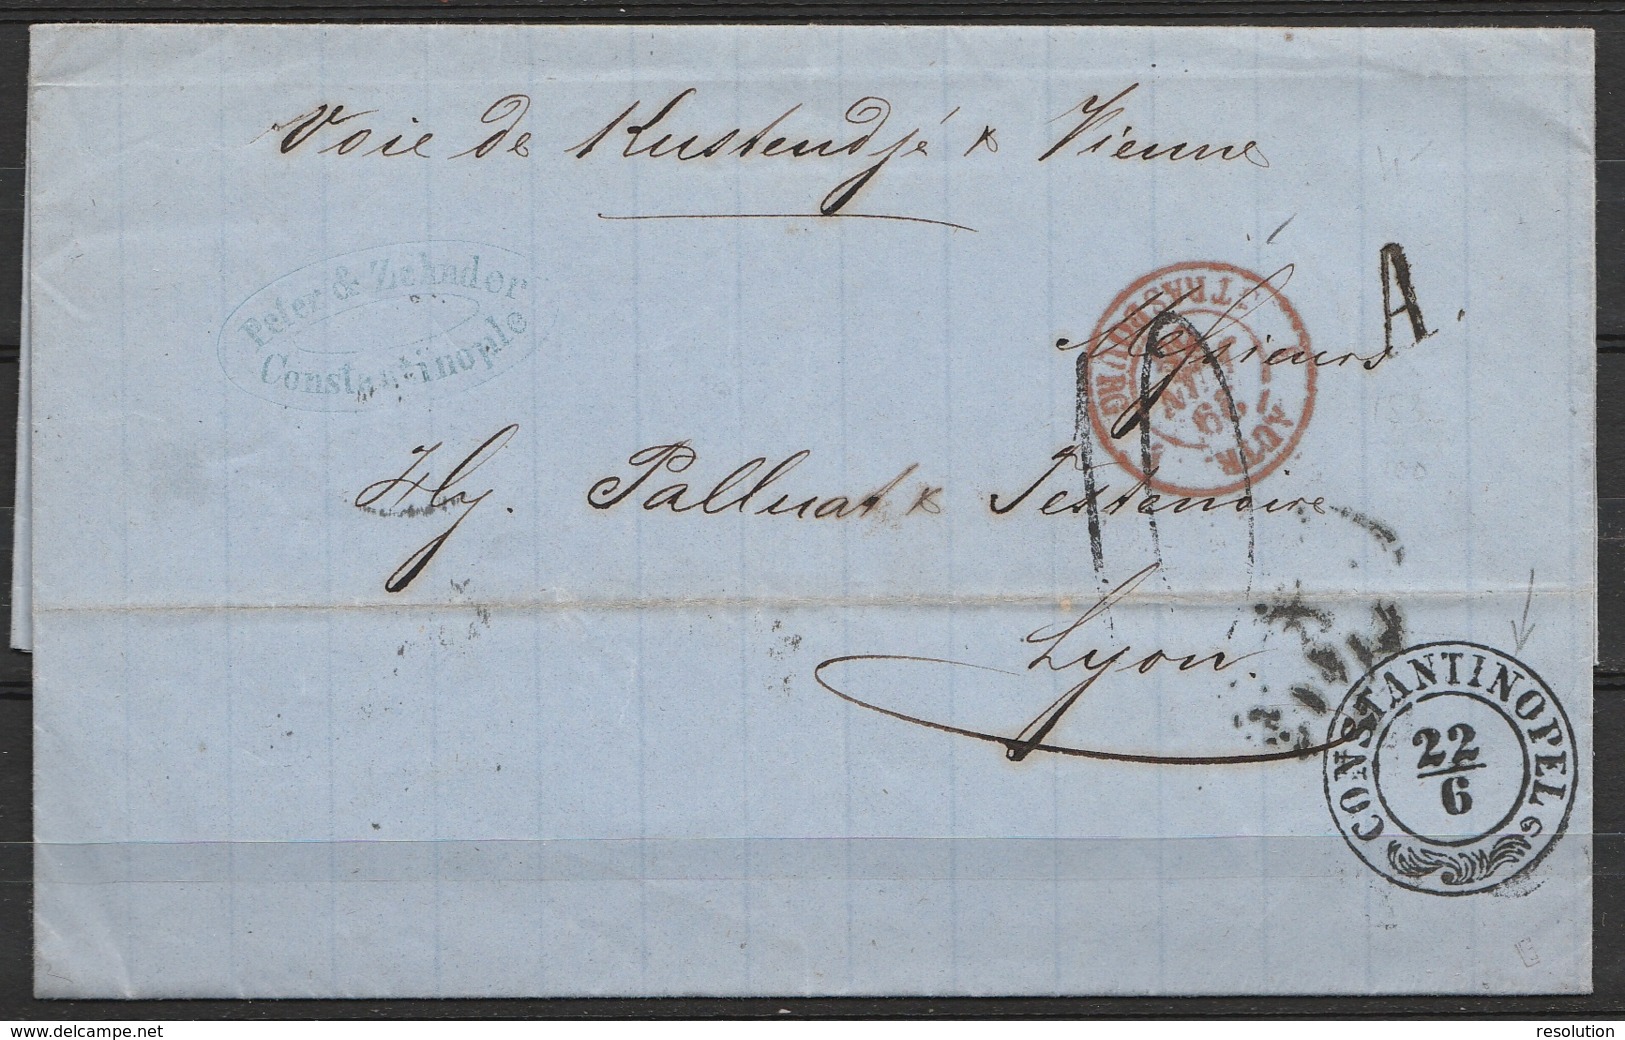 Voie de Kustendjé & Vienne
Peter & Zehnder
Constantinople
A.
Messieurs
STRASBOURG
JUIN
AUTR.
Hy. Palluat & Testenoire
Lyon.
CONSTANTINOPEL
22
6
www.delcampe.net
resolution